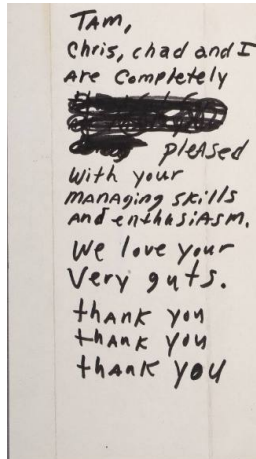 TAM,
Chris, chad and I
Are Completely
pleased
With your
mANAging skills
And enthusiASm.
We love your
Very guts.
thank you
thank you
thank you